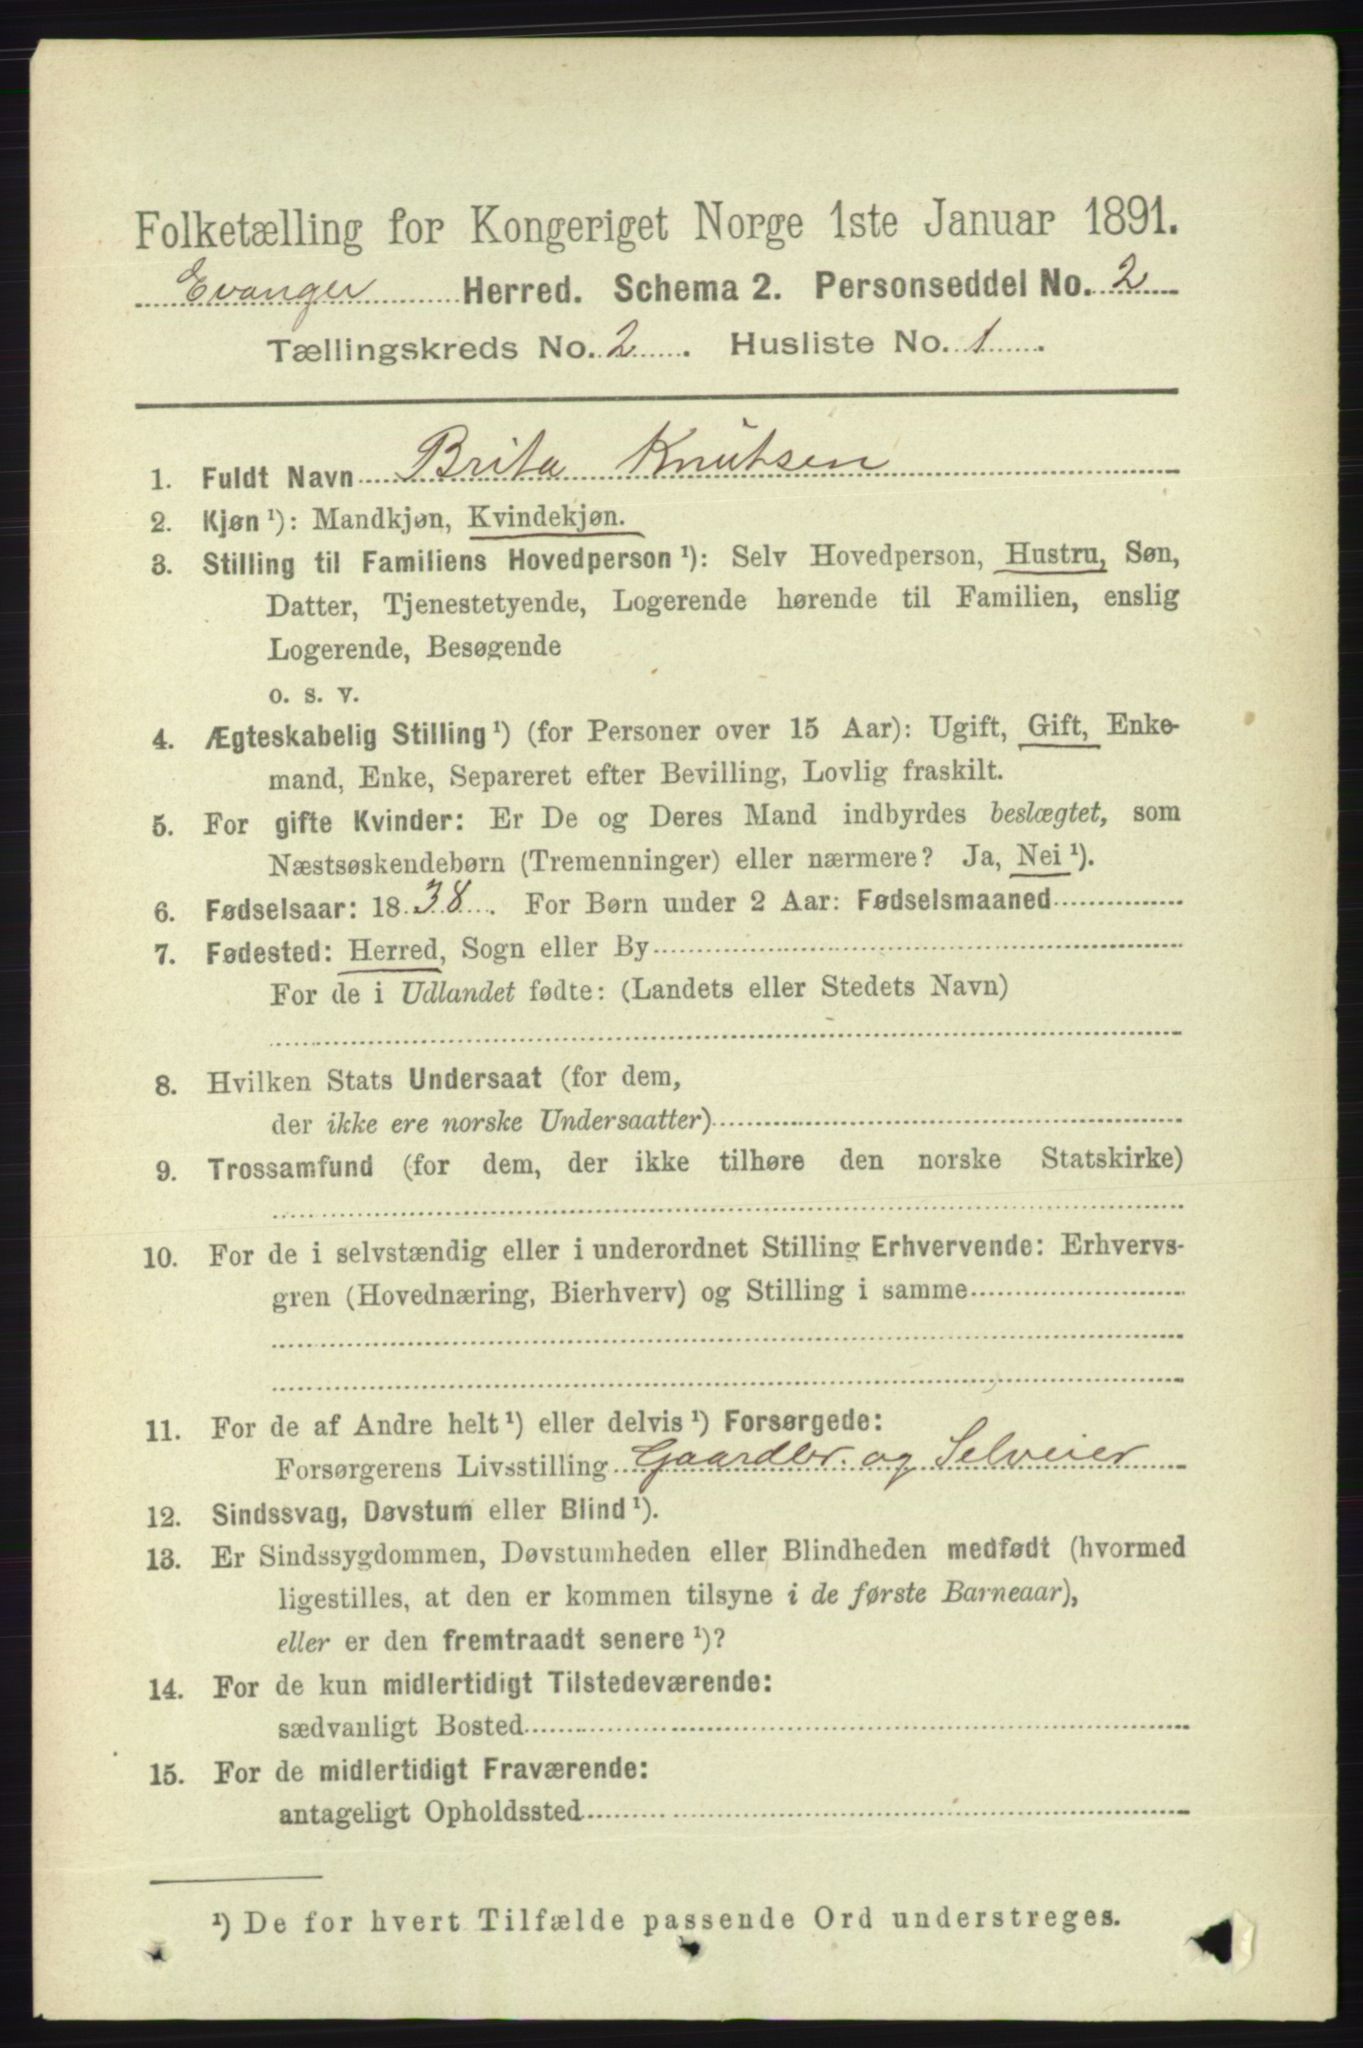 Folketælling for Kongeriget Norge 1ste Januar 1891.
Evanger Herred. Schema 2. Personseddel No. 2
Tællingskreds No. 2. Husliste No. 1.
1. Fuldt Navn Brita Knutsen
2. Kjøn ¹): Mandkjøn, Kvindekjøn.
3. Stilling til Familiens Hovedperson ¹): Selv Hovedperson, Hustru, Søn,
Datter, Tjenestetyende, Logerende hørende til Familien, enslig
Logerende, Besøgende
o. s. v.
4. Ægteskabelig Stilling ¹) (for Personer over 15 Aar): Ugift, Gift, Enke-
mand, Enke, Separeret efter Bevilling, Lovlig fraskilt.
5. For gifte Kvinder: Er De og Deres Mand indbyrdes beslægtet, som
Næstsøskendebørn (Tremenninger) eller nærmere? Ja, Nei ¹).
6. Fødselsaar: 1838. For Børn under 2 Aar: Fødselsmaaned
7. Fødested: Herred, Sogn eller By
For de i Udlandet fødte: (Landets eller Stedets Navn)
8. Hvilken Stats Undersaat (for dem,
der ikke ere norske Undersaatter)
9. Trossamfund (for dem, der ikke tilhøre den norske Statskirke)
10. For de i selvstændig eller i underordnet Stilling Erhvervende: Erhvervs-
gren (Hovednæring, Bierhverv) og Stilling i samme
11. For de af Andre helt ¹) eller delvis ¹) Forsørgede:
Forsørgerens Livsstilling Gaardbr. og Selveier
12. Sindssvag, Døvstum eller Blind ¹).
13. Er Sindssygdommen, Døvstumheden eller Blindheden medfødt (hvormed
ligestilles, at den er kommen tilsyne i de første Barneaar),
eller er den fremtraadt senere ¹)?
14. For de kun midlertidigt Tilstedeværende:
sædvanligt Bosted
15. For de midlertidigt Fraværende:
antageligt Opholdssted
¹) De for hvert Tilfælde passende Ord understreges.